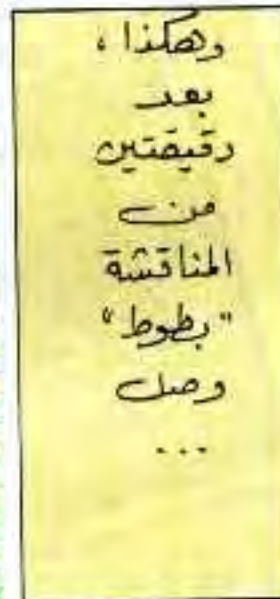 وهكذا،
بعد
دقيقتين
من
المناقشة
"بطوط"
وصل
...